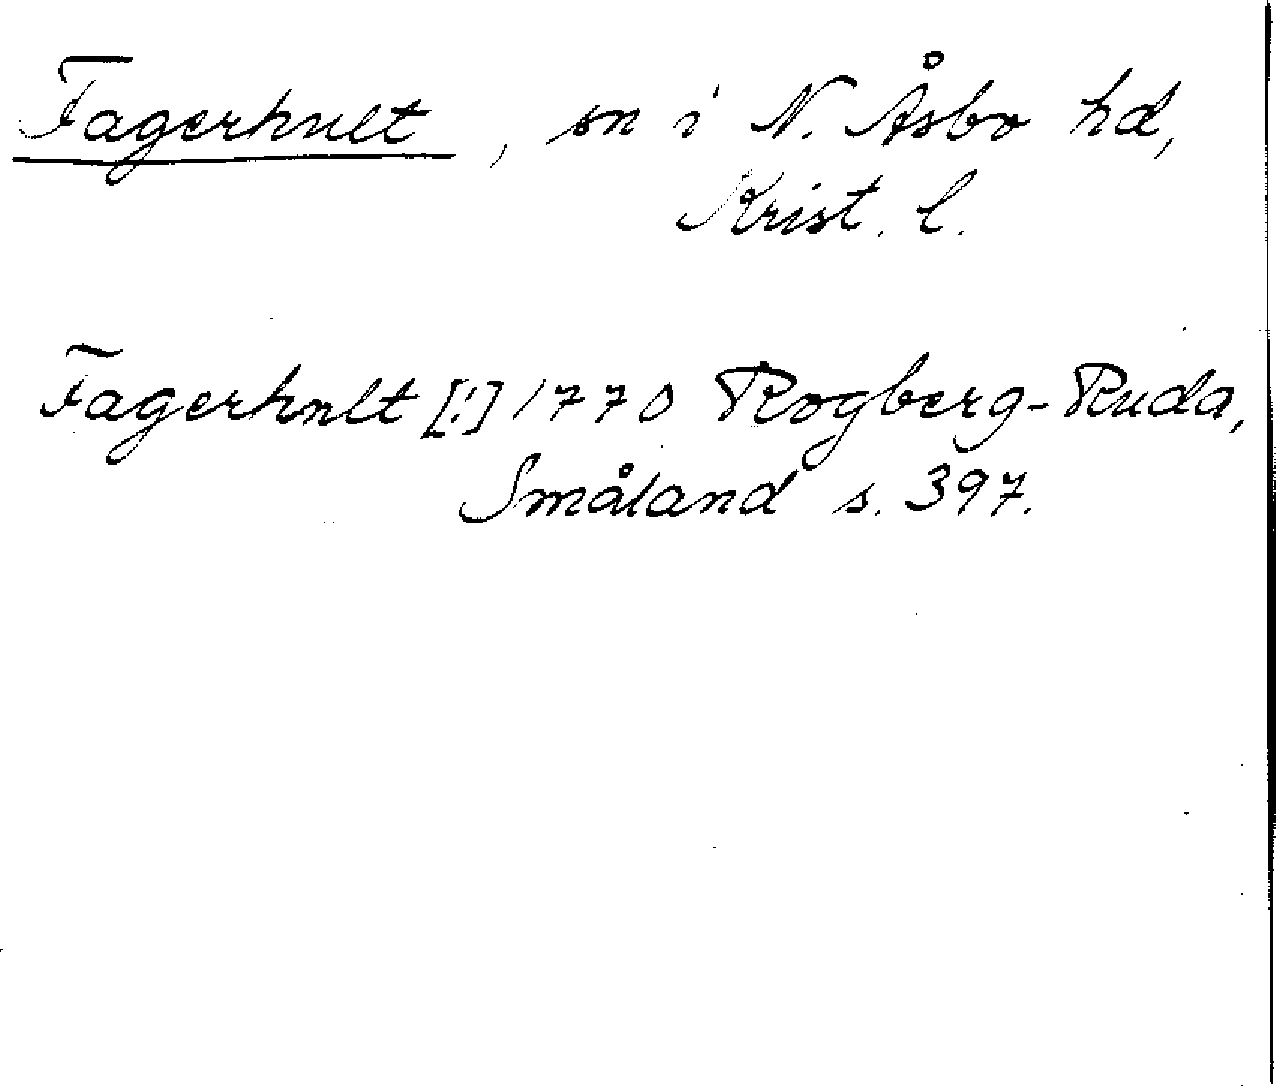 Fagerhult, sn i N. Åsbo hd,
Krist. l.
Fagerholt [!] 1770 Rogberg-Ruda,
Småland s. 397.